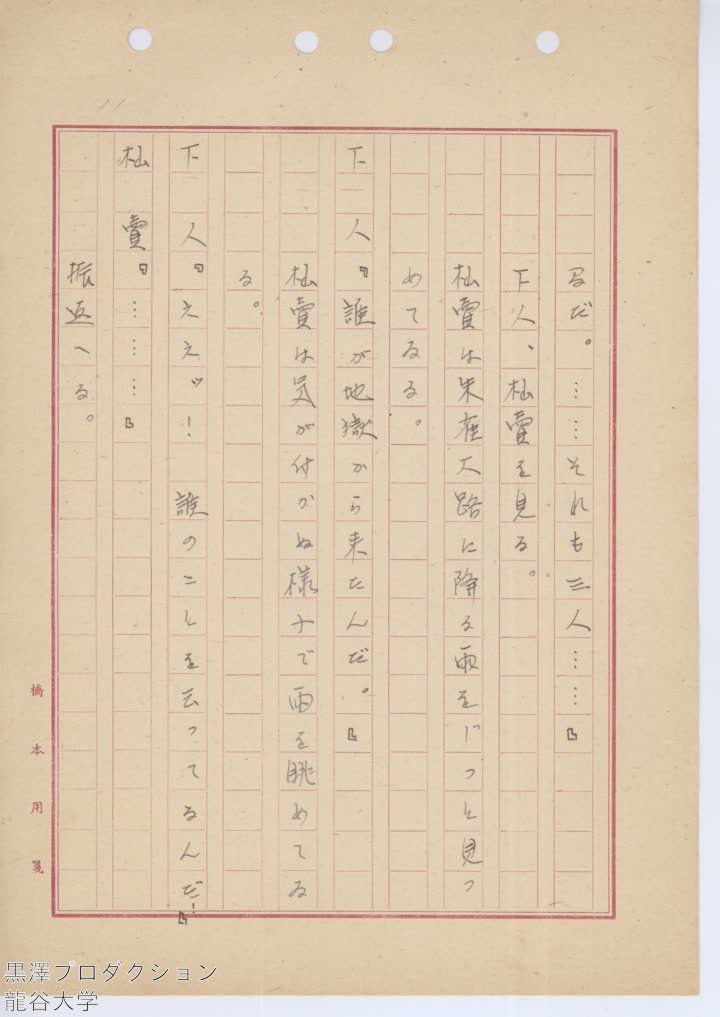 るだ。……それも三人……』
下人、杣賣を見る。
杣賣は朱雀大路に降る雨をじつと見つ
めてゐる。
下人。『誰が地獄から来たんだ。』
杣賣は気が付かぬ様子で雨を眺めてゐ
る。
下人。『ええッ！　誰のことを云つてるんだ！』
杣賣。『………』
振返へる。
橋本用箋
黒澤プロダクション
龍谷大学